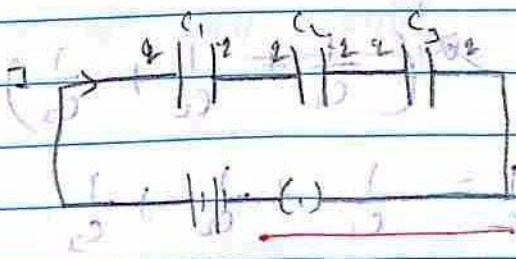 C₁ C₂ C₃
q q q q q q